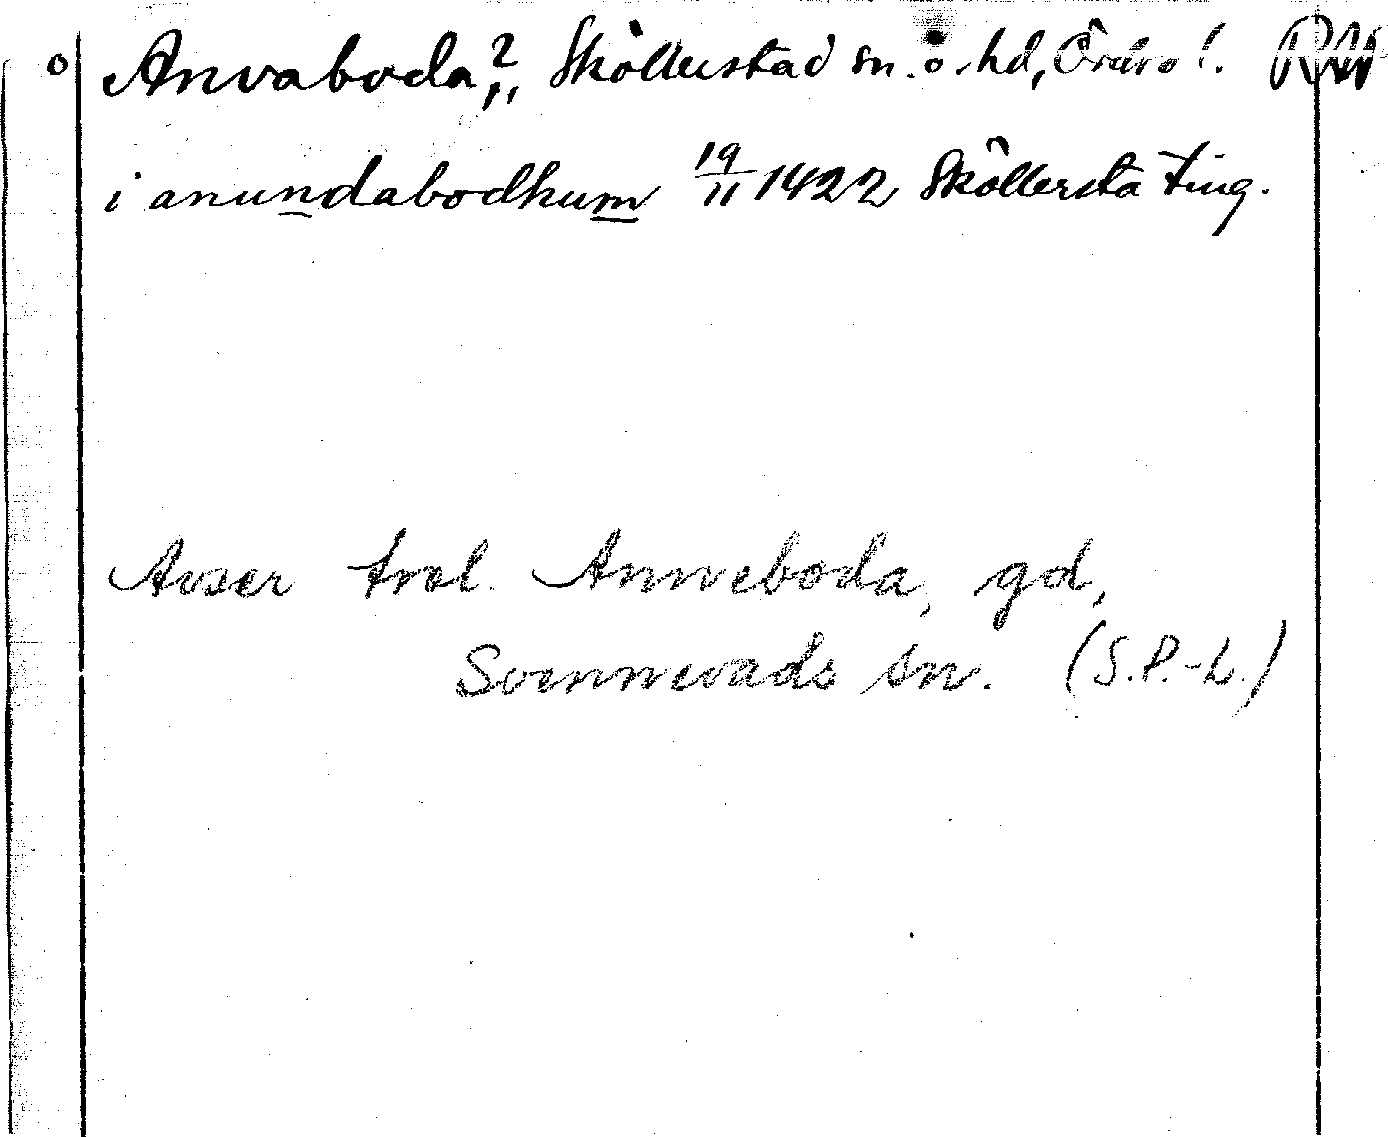 o Anvaboda?,, Sköllerstad sn. o. hd, Örebro l. RW
i anundabodhum 19/11 1422 Sköllersta ting.
Avser trol. Anneboda, gd,
Svennevads sn. (S.P.-L.)